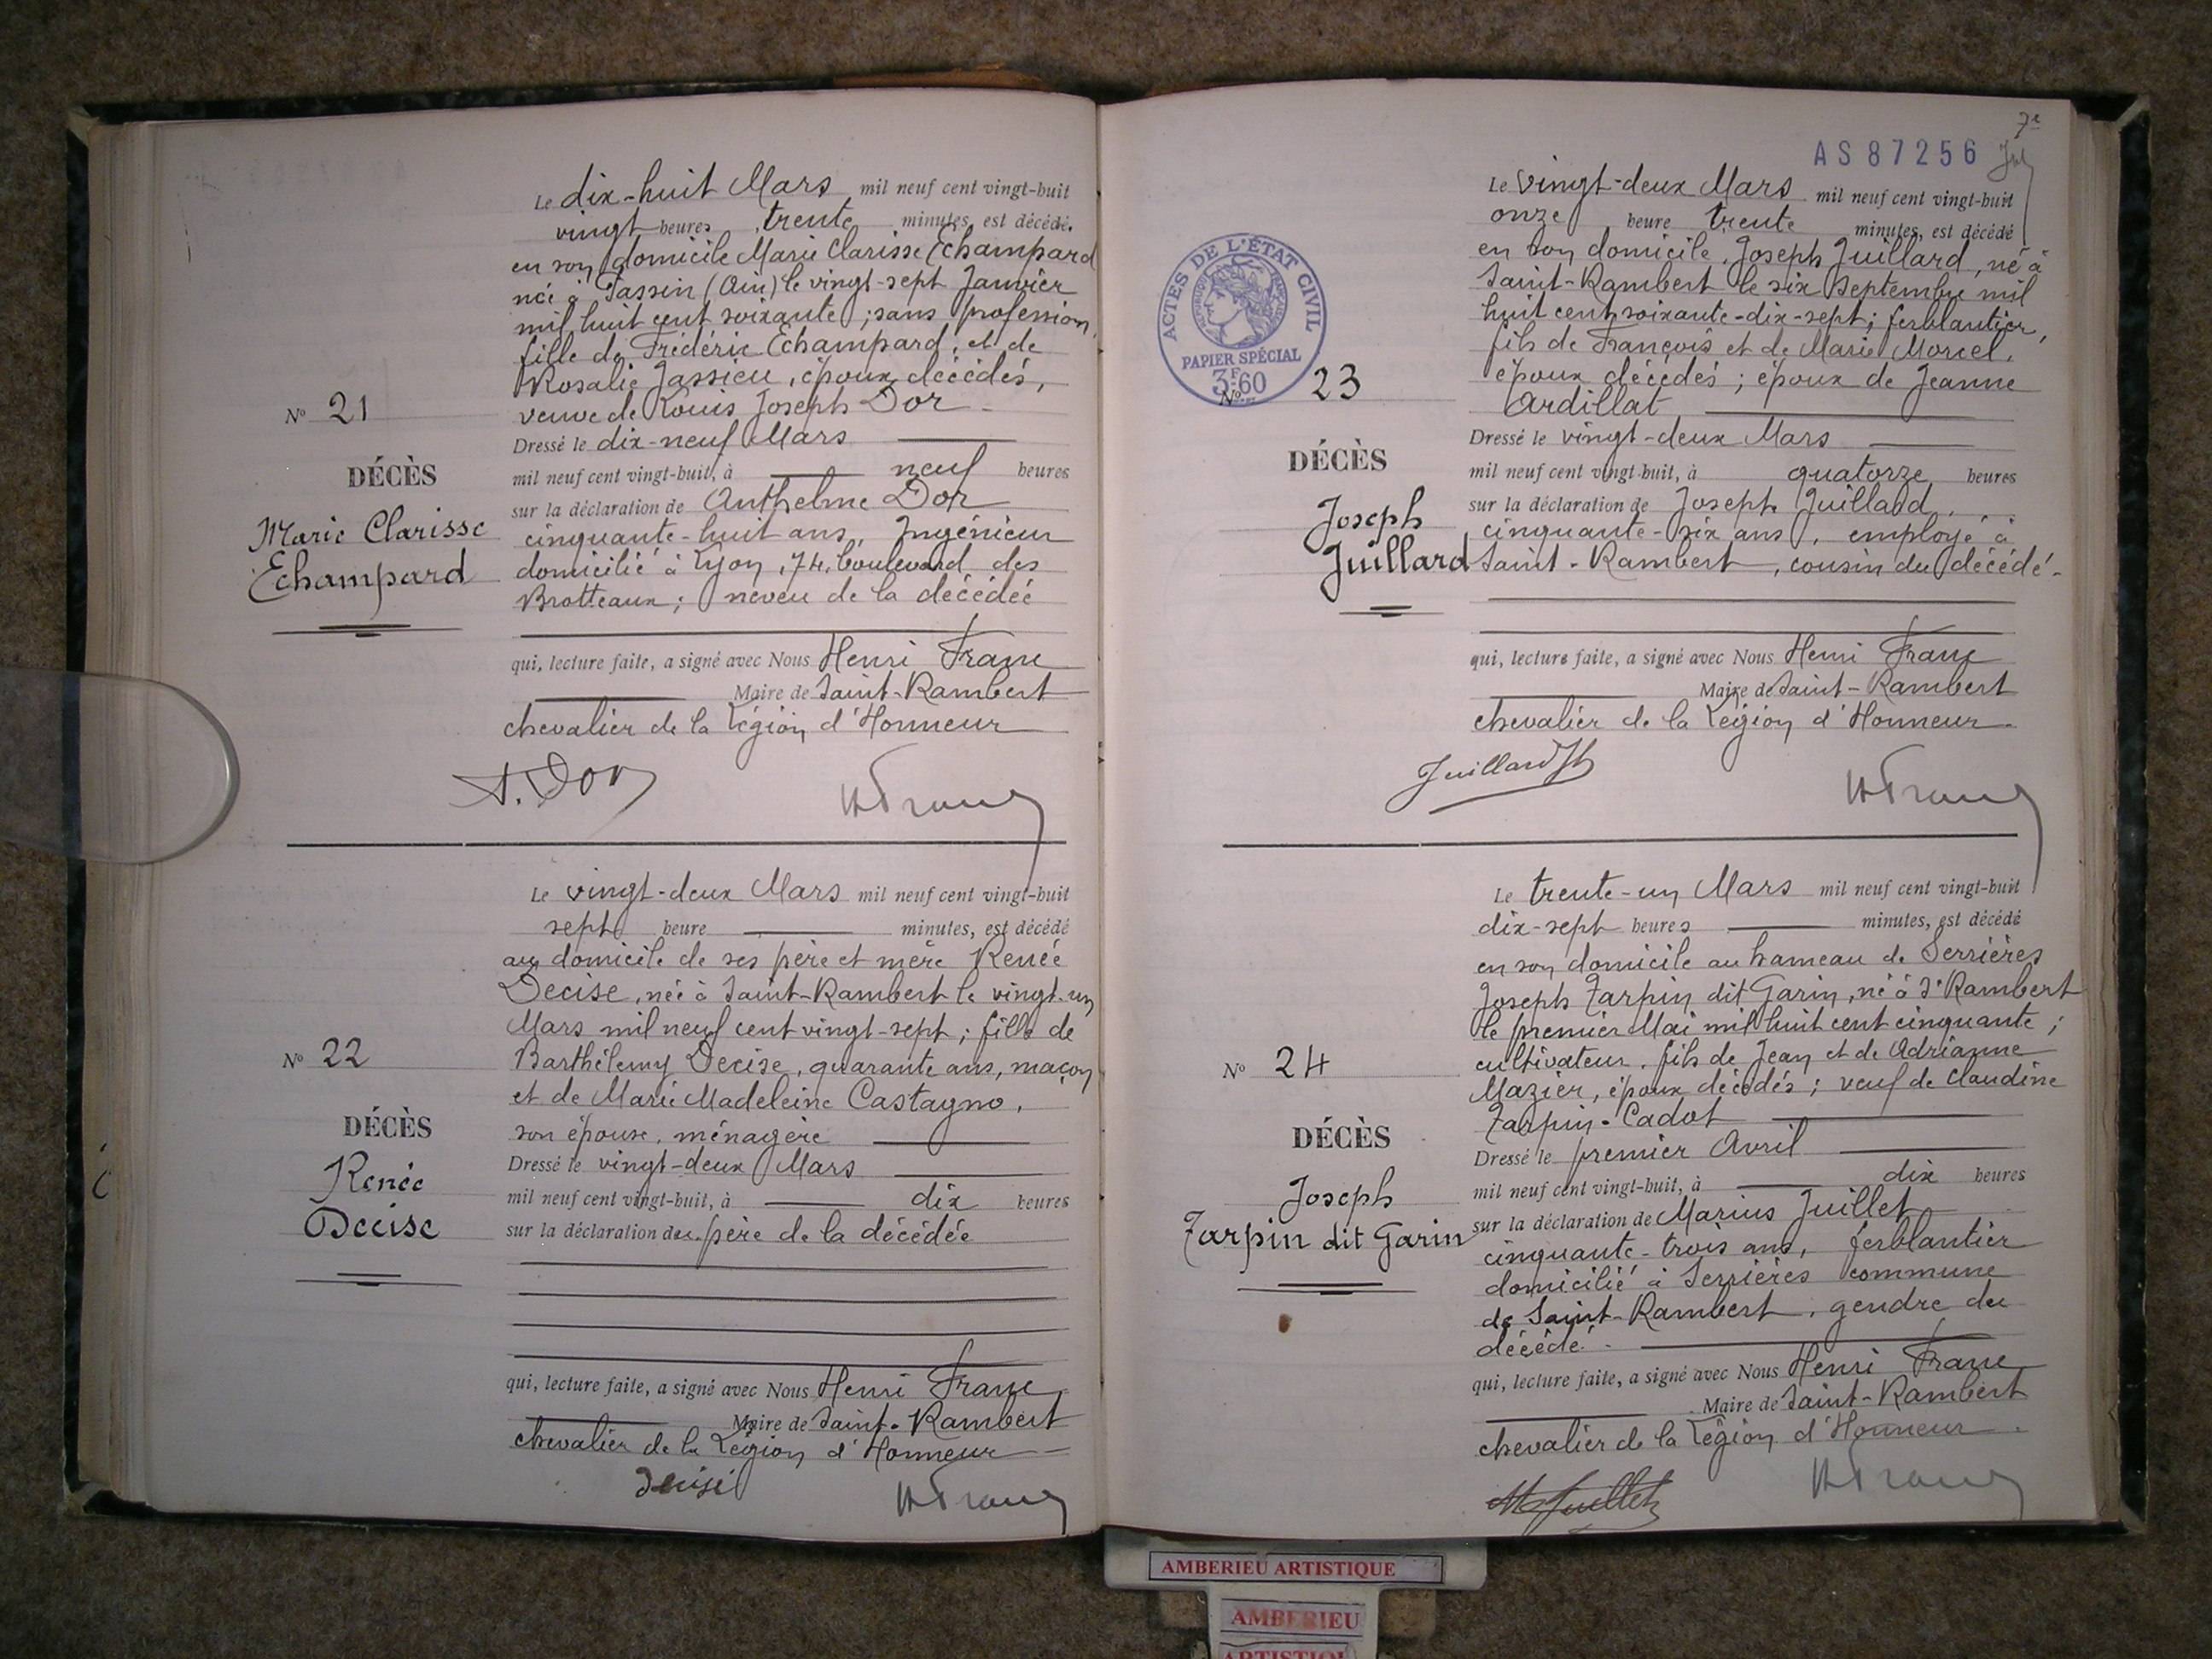 Le dix-huit Mars mil neuf cent vingt-huit
vingt heures trente minutes, est décédé.
en son domicile Marie Clarisse Echampard
née à Tassin (Ain) le vingt-sept Janvier
mil huit cent soixante ; sans profession,
fille de Frédéric Echampard, et de
Rosalie Jassieu, époux décédés,
N° 21
veuve de Louis Joseph Dor
Dressé le dix-neuf Mars
DÉCÈS
mil neuf cent vingt-huit, à neuf heures
Marie Clarisse
Echampard
sur la déclaration de Anthelme Dor
cinquante-huit ans, Ingénieur
domicilié à Lyon, 74, boulevard des
Brotteaux ; neveu de la décédée
qui, lecture faite, a signé avec Nous Henri Franc
Maire de Saint-Rambert
chevalier de la Légion d'Honneur
A. Dor
H Franc
Le vingt-deux Mars mil neuf cent vingt-huit
sept heure minutes, est décédé
au domicile de ses père et mère Renée
Decise, née à Saint-Rambert le vingt-un
Mars mil neuf cent vingt-sept ; fille de
N° 22
Barthélemy Decise, quarante ans, maçon
et de Marie Madeleine Castagno,
DÉCÈS
son épouse, ménagère
Renée
Decise
Dressé le vingt-deux Mars
mil neuf cent vingt-huit, à dix heures
sur la déclaration du père de la décédée
qui, lecture faite, a signé avec Nous Henri Franc
Maire de Saint-Rambert
chevalier de la Légion d'Honneur
Decise
H Franc
7e
AS 87256
ACTES DE L'ÉTAT CIVIL
PAPIER SPÉCIAL
3F.60
Le vingt-deux Mars mil neuf cent vingt-huit
onze heure trente minutes, est décédé
en son domicile, Joseph Juillard, né à
Saint-Rambert le six Septembre mil
huit cent soixante-dix-sept ; ferblantier,
fils de François et de Marie Morcel,
N° 23
époux décédés ; époux de Jeanne
Cardillat
DÉCÈS
Dressé le vingt-deux Mars
mil neuf cent vingt-huit, à quatorze heures
Joseph
Juillard
sur la déclaration de Joseph Juillard,
cinquante-six ans, employé à
Saint-Rambert, cousin du décédé
qui, lecture faite, a signé avec Nous Henri Franc
Maire de Saint-Rambert
chevalier de la Légion d'Honneur
Juillard Jh
H Franc
Le trente-un Mars mil neuf cent vingt-huit
dix-sept heures minutes, est décédé
en son domicile au hameau de Serrières
Joseph Tarpin dit Garin, né à St Rambert
le premier Mai mil huit cent cinquante ;
N° 24
cultivateur, fils de Jean et de Adrianne
Mazier, époux décédés ; veuf de Claudine
Tarpin-Cadot
DÉCÈS
Dressé le premier Avril
Joseph
Tarpin dit Garin
mil neuf cent vingt-huit, à dix heures
sur la déclaration de Marius Juillet
cinquante-trois ans, ferblantier
domicilié à Serrières commune
de Saint-Rambert, gendre du
décédé
qui, lecture faite, a signé avec Nous Henri Franc
Maire de Saint-Rambert
chevalier de la Légion d'Honneur
M Juillet
H Franc
AMBERIEU ARTISTIQUE
AMBERIEU
ARTISTIQUE